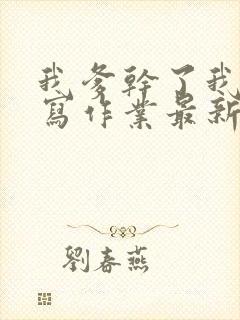 我爹幹了我
寫作業最新
劉春燕